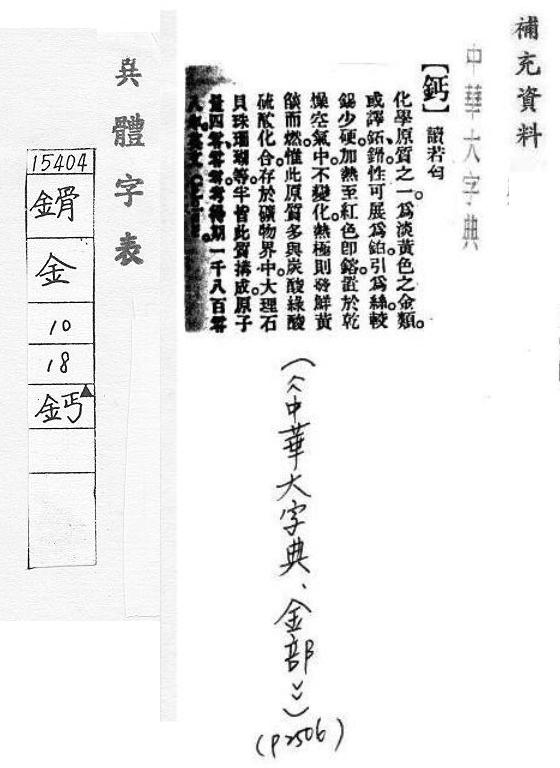 補充資料
中華大字典
【鈣】讀若匄
化學原質之一。爲淡黃色之金類。
或譯鉐性可展爲鉑。引爲絲。較
錫少硬。加熱至紅色卽鎔。置於乾
燥空氣中。不變化。熱極則發鮮黃
燄而燃。惟此原質多與炭酸綠酸
硫酸化合。存於礦物界中。大理石
貝珠珊瑚等半皆此質構成。原子
量四零期一千八百零
(《中華大字典、金部》)
(P2506)
異體字表
15404
金
10
18
鈣